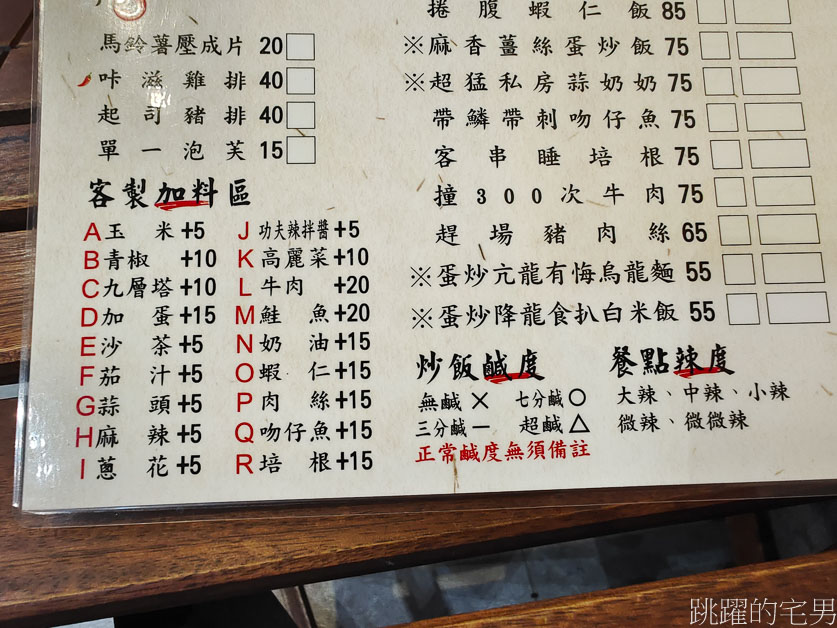 馬鈴薯壓成片 20
咔滋雞排 40
起司豬排 40
單一泡芙 15
捲腹蝦仁飯 85
※麻香薑絲蛋炒飯 75
※超猛私房蒜奶奶 75
帶鱗帶刺吻仔魚 75
客串睡培根 75
撞300次牛肉 75
趕場豬肉絲 65
※蛋炒亢龍有悔烏龍麵 55
※蛋炒降龍食扒白米飯 55
客製加料區
A玉米+5
B青椒+10
C九層塔+10
D加蛋+15
E沙茶+5
F茄汁+5
G蒜頭+5
H麻辣+5
I蔥花+5
J功夫辣拌醬+5
K高麗菜+10
L牛肉+20
M鮭魚+20
N奶油+15
O蝦仁+15
P肉絲+15
Q吻仔魚+15
R培根+15
炒飯鹹度
無鹹× 七分鹹○
三分鹹— 超鹹△
正常鹹度無須備註
餐點辣度
大辣、中辣、小辣
微辣、微微辣
跳躍的宅男